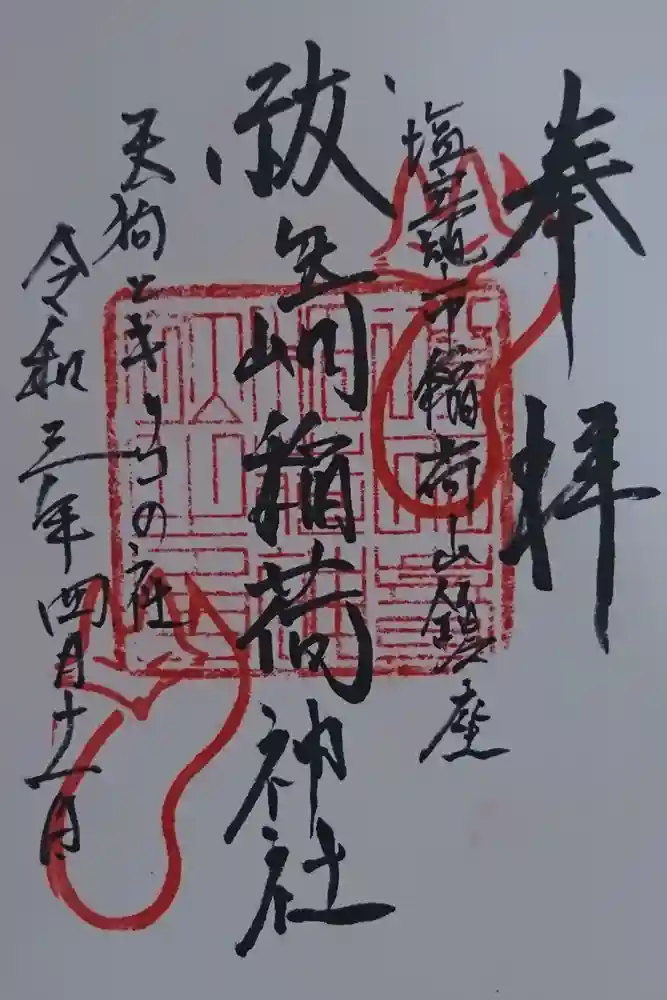 奉拝
塩竈市稲荷山鎮座
祓ヶ崎稲荷神社
天狗ときつねの社
令和三年四月十一日